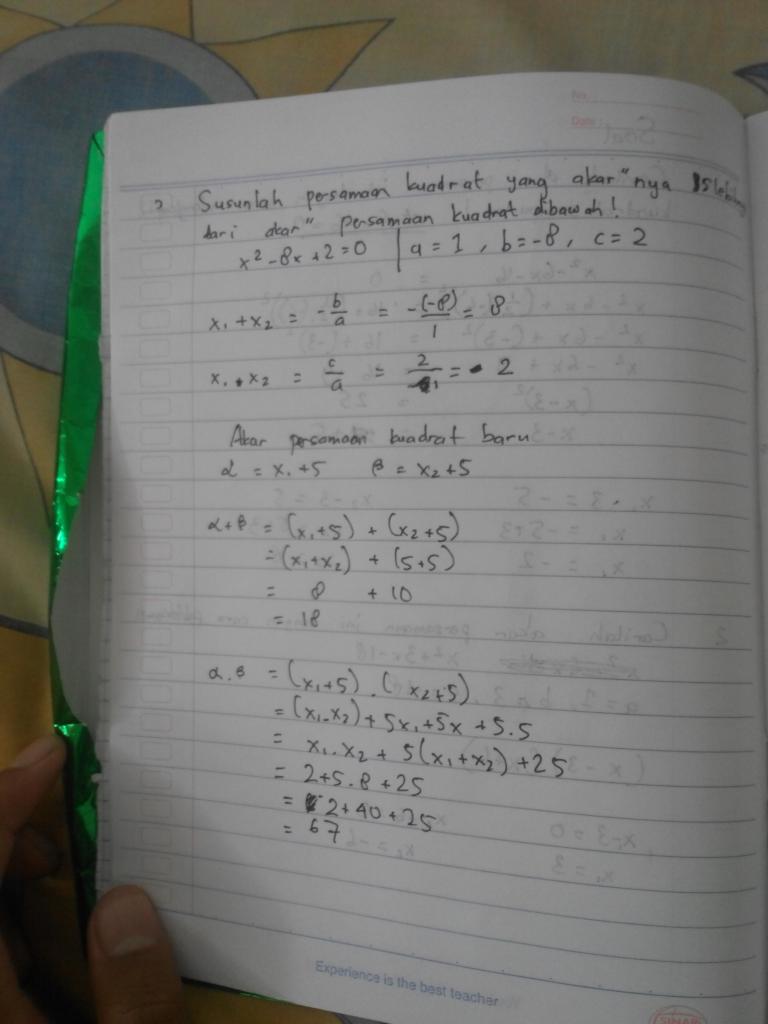 No.
Date :
3 Susunlah persamaan kuadrat yang akar"nya 5 lebihnya
dari akar" persamaan kuadrat dibawah!
x² - 8x + 2 = 0 | a = 1 , b = -8 , c = 2
x₁ + x₂ = - b/a = - (-8)/1 = 8
x₁ . x₂ = c/a = 2/1 = 2
Akar persamaan kuadrat baru
α = x₁ + 5 β = x₂ + 5
α + β = (x₁ + 5) + (x₂ + 5)
= (x₁ + x₂) + (5 + 5)
= 8 + 10
= 18
α . β = (x₁ + 5) . (x₂ + 5)
= (x₁ . x₂) + 5x₁ + 5x + 5.5
= x₁ . x₂ + 5(x₁ + x₂) + 25
= 2 + 5 . 8 + 25
= 2 + 40 + 25
= 67
Experience is the best teacher
SINAR